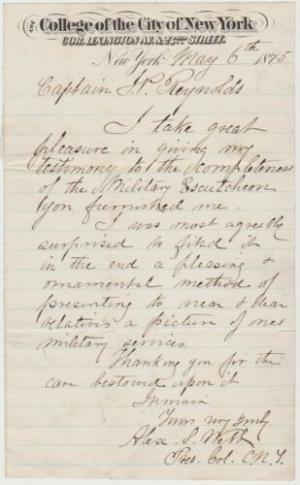 THE College of the City of New York
COR. LEXINGTON AV. & 23RD STREET.
New York May 6th 1875
Captain Reynolds
I take great
pleasure in giving my
testimony to the completeness
of the Military Escutcheon
you furnished me.
I was most agreebly
surprised to find it
in the end a pleasing &
ornamental method of
presenting to near & dear
relatives a picture of ones
military services
Thanking you for the
care bestowed upon it
I remain
Yours very truly
Alex. S. Webb
Pres. Col. C.N.Y.